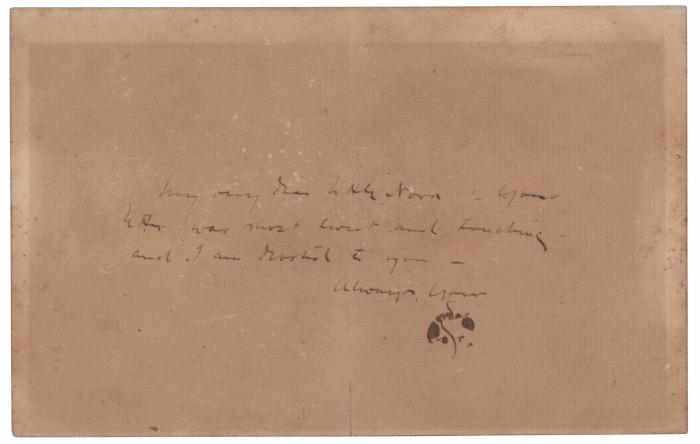 My very dear little Nora – Your
letter was most sweet and touching –
and I am devoted to you –
Always, Your